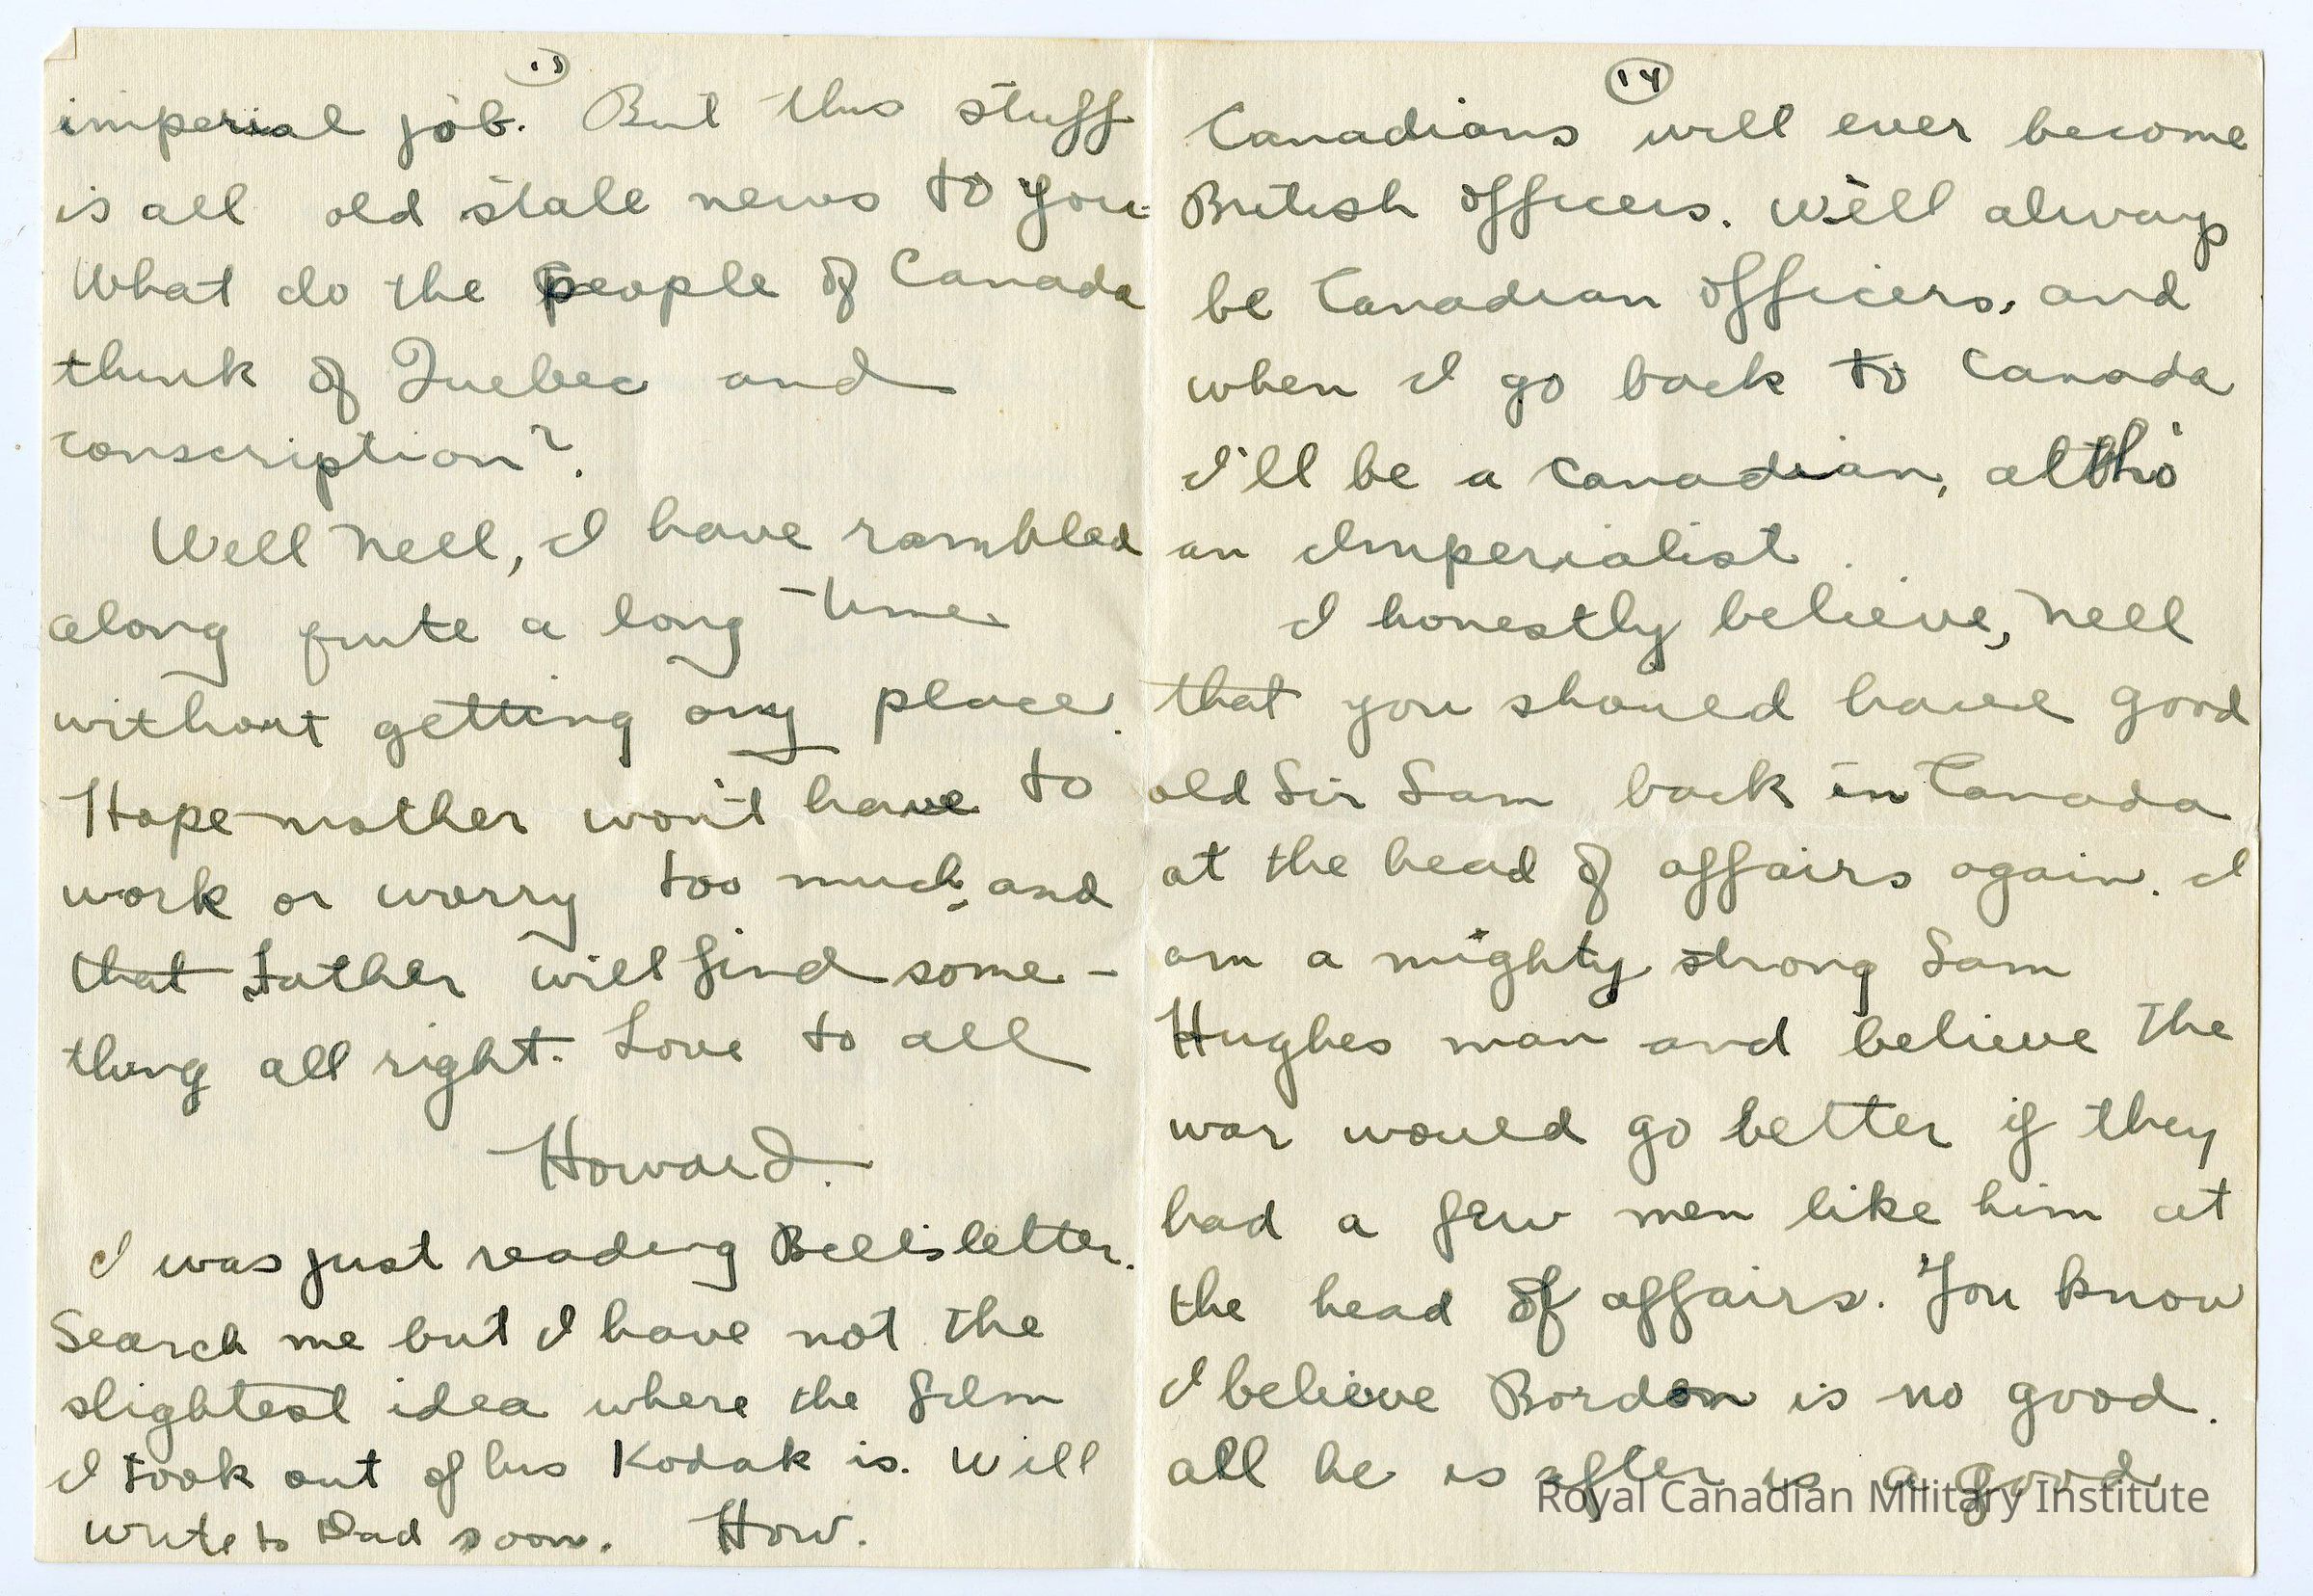 15
imperial job. But this stuff
is all old stale news to you.
What do the people of Canada
think of Quebec and
conscription?
Well Nell, I have rambled
along quite a long time
without getting any place.
Hope mother won't have to
work or worry too much, and
that Father will find some-
thing all right. Love to all
Howard.
I was just reading Bill's letter.
Search me but I have not the
slightest idea where the film
I took out of his Kodak is. Will
write to Dad soon. How.
14
Canadians will ever become
British officers. We'll always
be Canadian officers, and
when I go back to Canada
I'll be a Canadian, altho'
an Imperialist.
I honestly believe, Nell
that you should have good
old Sir Sam back in Canada
at the head of affairs again. I
am a mighty strong Sam
Hughes man and believe the
war would go better if they
had a few men like him at
the head of affairs. You know
I believe Bordon is no good.
all he is after is a good
Royal Canadian Military Institute